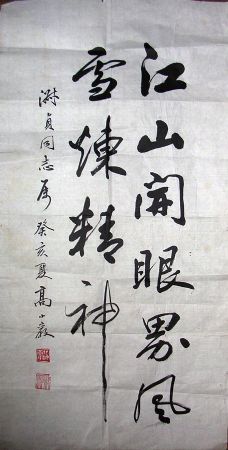 江山開眼界風
雪煉精神
淑貞同志属 癸亥夏 高小岩